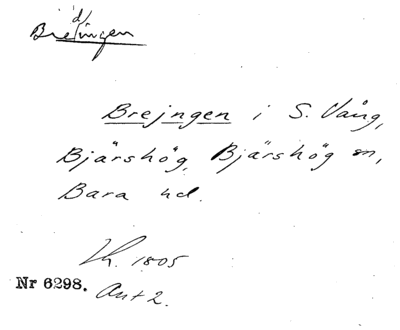 Bredingen
Brejngen i S. Vång,
Bjärshög, Bjärshög sn,
Bara hd.
Lh. 1805
Nr 6298. Akt 2.